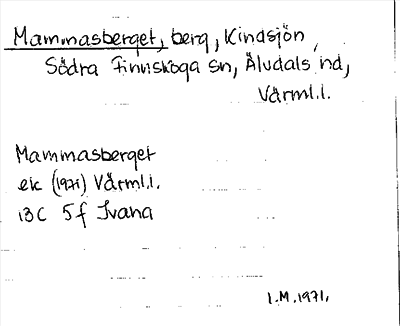 Mammasberget, berg, Kindsjön,
Södra Finnskoga sn, Älvdals hd,
Värml.l.
Mammasberget
ek (1971) Värml.l.
13C 5f Ivana
I.M. 1971.